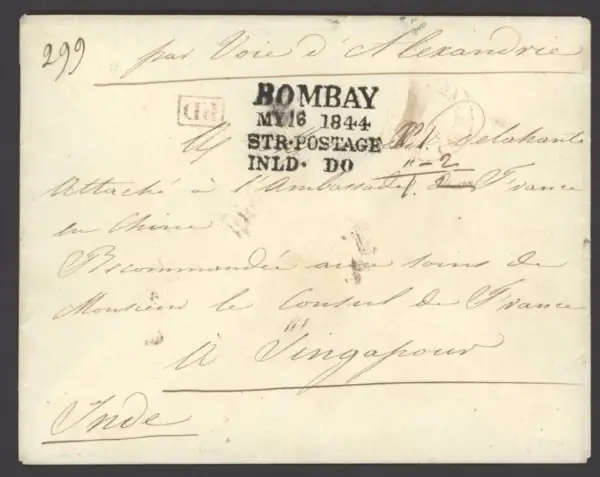 299
par Voie d'Alexandrie
PD
BOMBAY
MY 16 1844
STR·POSTAGE
INLD· DO
A M delahante
"-2
Attaché à l'Ambassade de France
en Chine
Recommandée aux soins de
Monsieur le Consul de France
A Singapour
Inde